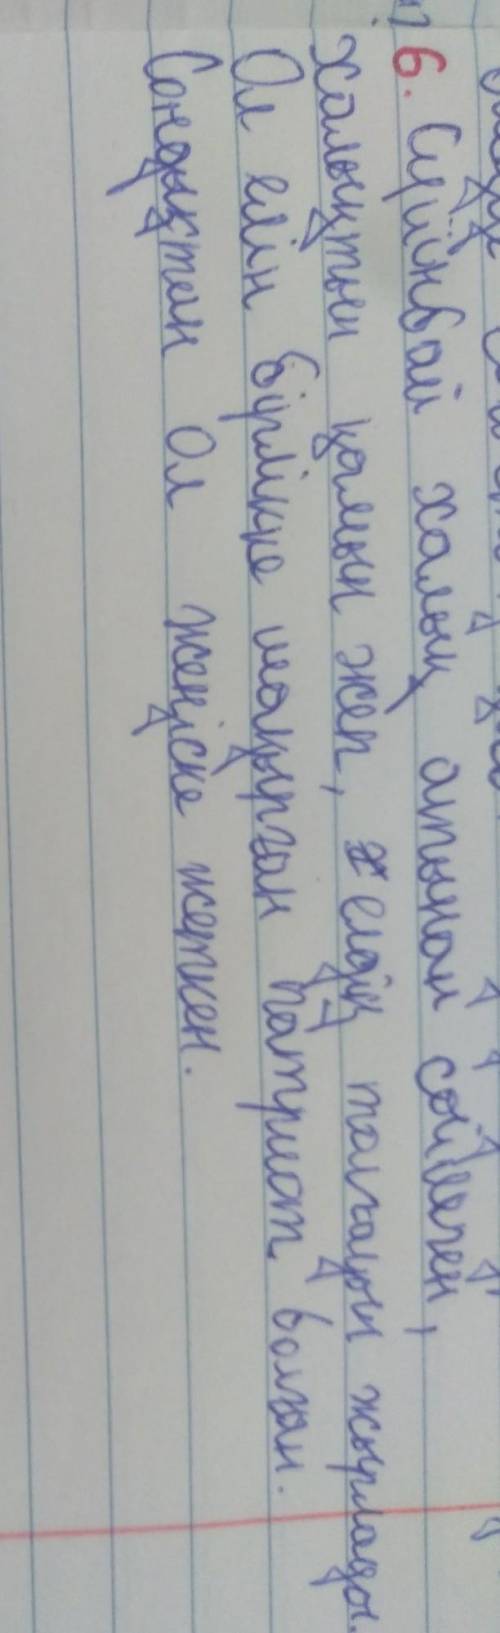 6. Сүйінбай халық атынан сөйлеген,
Халықтың қамын жеп, елдің талғаын жырлады.
Ол елін бірлікке шақырған патриот болған.
Сондықтан Ол жеңіске жеткен.